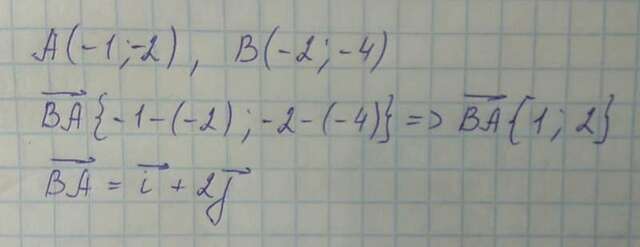 A(-1;-2), B(-2;-4)
$\overrightarrow{BA}${-1-(-2);-2-(-4)} => $\overrightarrow{BA}${1;2}
$\overrightarrow{BA}$ = $\vec{i}$ + 2$\vec{j}$